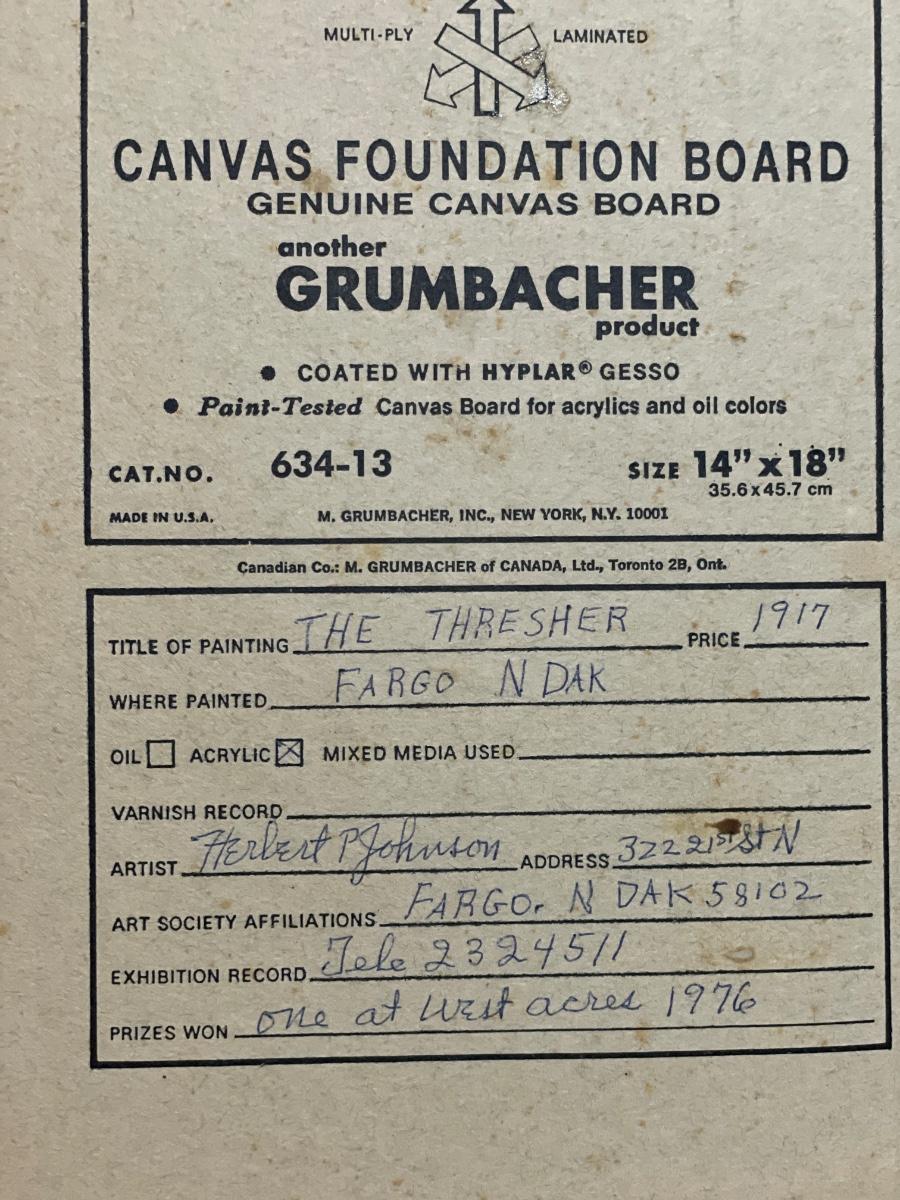 MULTI-PLY LAMINATED
CANVAS FOUNDATION BOARD
GENUINE CANVAS BOARD
another
GRUMBACHER
product
• COATED WITH HYPLAR® GESSO
• Paint-Tested Canvas Board for acrylics and oil colors
CAT.NO. 634-13 SIZE 14" x 18"
35.6 x 45.7 cm
MADE IN U.S.A. M. GRUMBACHER, INC., NEW YORK, N.Y. 10001
Canadian Co.: M. GRUMBACHER of CANADA, Ltd., Toronto 2B, Ont.
TITLE OF PAINTING THE THRESHER PRICE 1917
WHERE PAINTED FARGO N DAK
OIL ☐ ACRYLIC ☒ MIXED MEDIA USED
VARNISH RECORD
ARTIST Herbert P Johnson ADDRESS 322 21st St N
ART SOCIETY AFFILIATIONS FARGO. N DAK 58102
EXHIBITION RECORD Tele 2324511
PRIZES WON one at West acres 1976